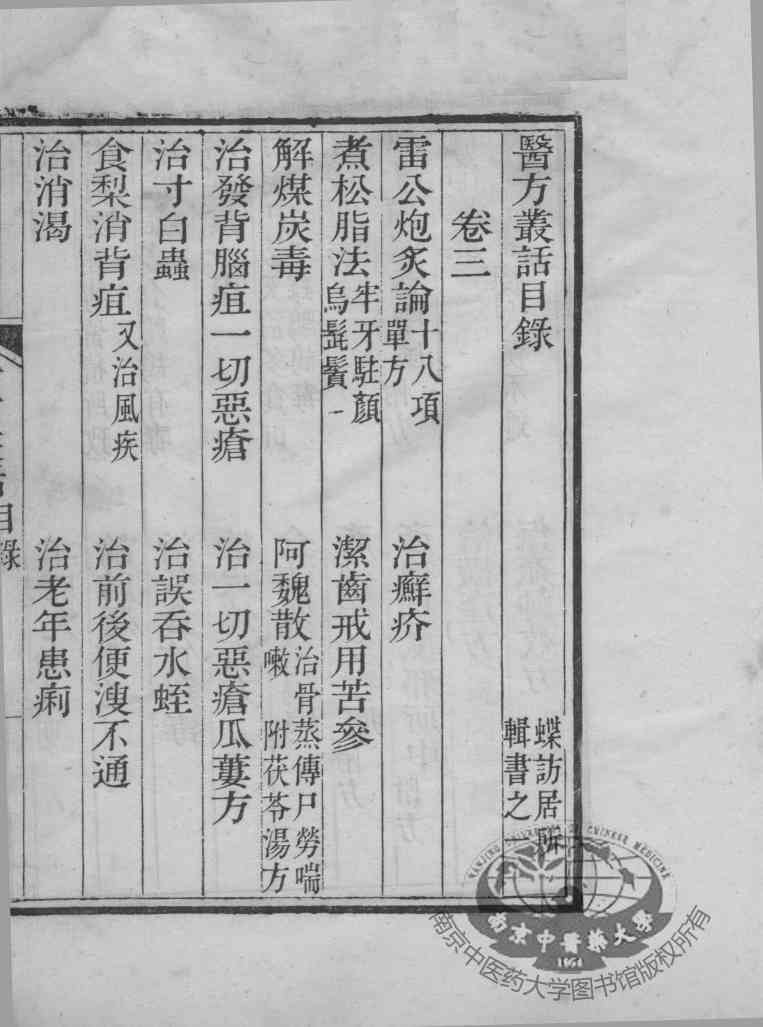 醫方叢話目錄　蝶訪居所輯書之一
卷三
雷公炮炙論十八項單方　治癬疥
煮松脂法牢牙駐顏烏髭鬢　潔齒戒用苦參
解煤炭毒　阿魏散治骨蒸傳尸勞喘嗽　附茯苓湯方
治發背腦疽一切惡瘡　治一切惡瘡瓜蔞方
治寸白蟲　治誤吞水蛭
食梨消背疽又治風疾　治前後便溲不通
治消渴　治老年患痢
目錄
NANJING UNIVERSITY OF CHINESE MEDICINE
南京中醫藥大學
1954
南京中医药大学图书馆版权所有